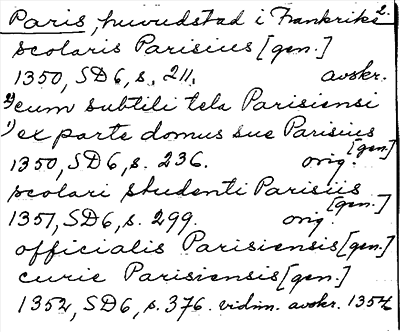 Paris, huvudstad i Frankrike 2.
scolaris Parisius [gen.]
1350, SD6, s. 211. avskr.
2) cum subtili tela Parisiensi
1) ex parte domus sue Parisius [gen.]
1350, SD6, s. 236. orig.
scolari studenti Parisiis [gen.]
1351, SD6, s. 299. orig.
officialis Parisiensis [gen.]
curie Parisiensis [gen.]
1352, SD6, s. 376. vidim. avskr. 1354